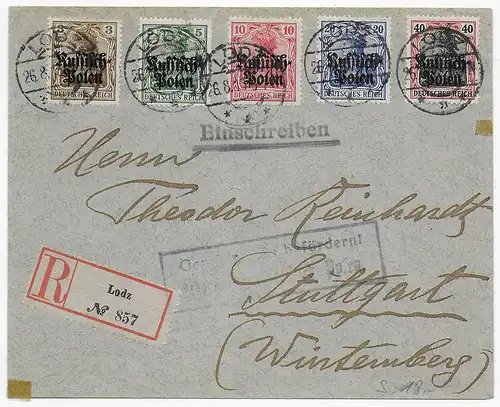 3 5 10 10 20 20 40 40
Russisch-Polen Russisch-Polen Russisch-Polen Russisch-Polen Russisch-Polen
DEUTSCHES REICH DEUTSCHES REICH DEUTSCHES REICH DEUTSCHES REICH DEUTSCHES REICH
LODZ LODZ LODZ LODZ LODZ
26.8
Einschreiben
Herrn
Theodor Reinhardt
befördern!
Polen
Stuttgart
(Würtemberg)
R Lodz
№ 857
S 18.-